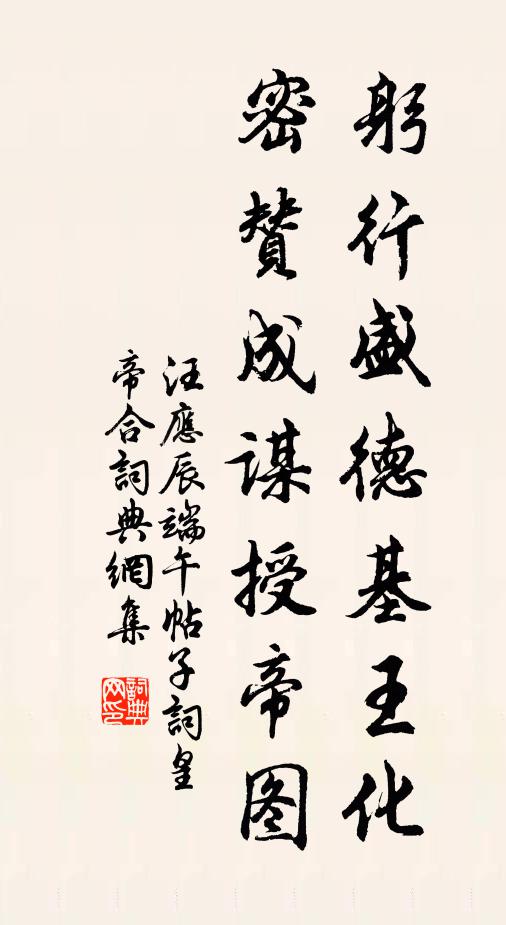 躬行盛德基王化
密贊成謀授帝图
汪應辰端午帖子詞皇
帝合詞典網集
詞典
网印